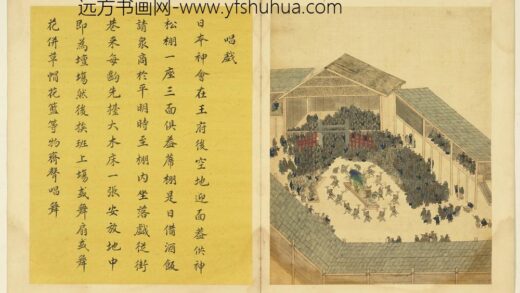 远方书画网-www.yfshuhua.com
唱戲
日本神會在王府後空地迎面蓋供神
松棚一座三面俱蓋蓆棚是日備酒飯
請衆商於平明時至棚内坐落戲從街
巷來每齣先擡大木床一張安放地中
即為壇場然後挨班上場或舞扇或舞
花併草帽花籃等物齊聲唱舞